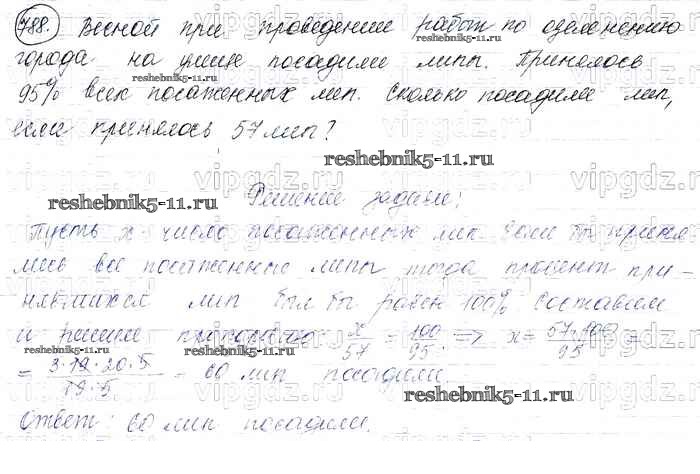 788. Весной при проведении работ по озеленению
города на улице посадили липы. Принялось
95% всех посаженных лип. Сколько посадили лип,
если принялось 57 лип?
reshebnik5-11.ru
Решение задачи:
Пусть x число посаженных лип. Если бы приня-
лись все посаженные липы тогда процент при-
нявшихся лип был бы равен 100% Составим
и решим пропорцию: x/57 = 100/95 => x = 57·100/95 =
= 3·19·20·5/19·5 = 60 лип посадили
Ответ: 60 лип посадили.
vipgdz.ru